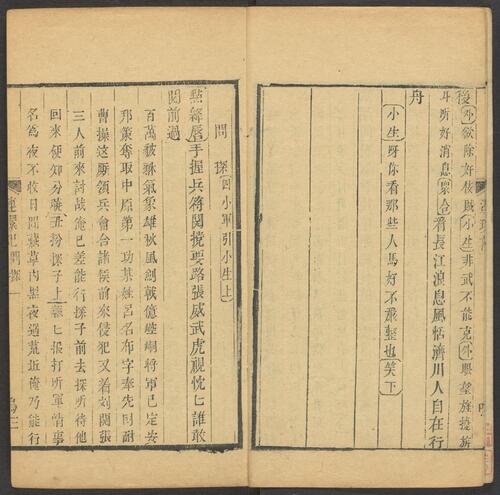 後(外)欲除奸佞賊(小生)非武不能克(外)專望旌捷旂
斗所好消息(眾合)看長江浪息風恬濟川人自在行
舟
(小生)呀你看那些人馬好不飛整也(笑下)
問探(四小軍引小生上)
點絳唇手握兵符関攩要路張威武虎視忱匕誰敢
関前過
百萬貔貅氣象雄秋風劍戟
將軍已定安
邦策奪取中原第一功某姓呂名布字奉先
曹操
領兵會合諸侯前來侵犯又着
関張
三人前來討戰俺已差能行探子前去探
待他
回來便知分曉丑扮探子上
匕
打
軍情事
名為夜不收日間
草內黑夜過荒坵俺乃能行
連環記問探